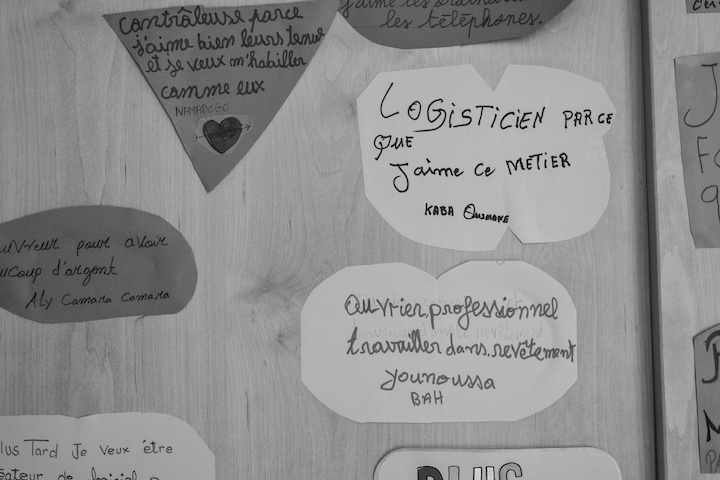 contrôleuse parce
j'aime bien leurs tenue
et je veux m'habiller
comme eux
NAMADOGO
j'aime les
les téléphones.
LOGISTICIEN PARCE
QUE
J'aime ce METIER
KABA Ousmane
pour avoir
d'argent
Aly Camara Camara
ouvrier, professionnel
travailler dans. revêtement
younoussa
BAH
Plus Tard Je veux être
PLUS